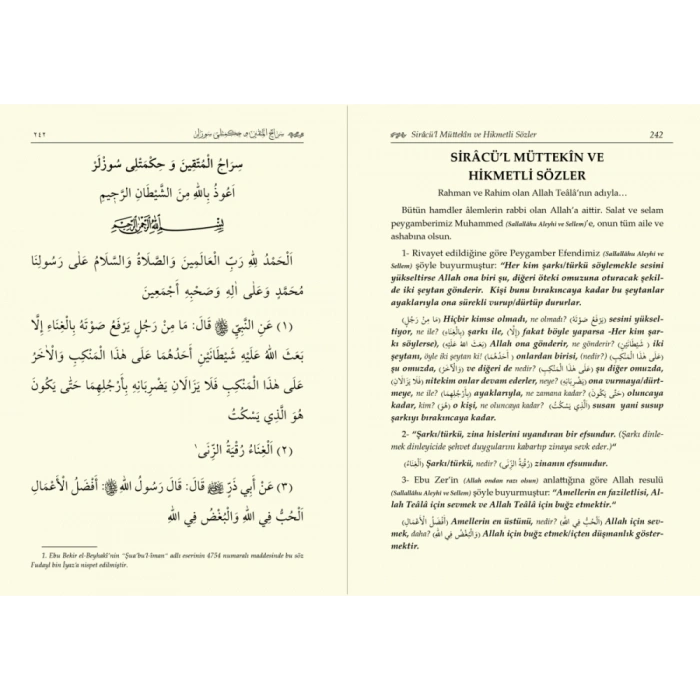 ٢٤٢ سِرَاجُ الْمُتَّقِينَ وَ حِكْمَتْلِى سُوزْلَرْ
سِرَاجُ الْمُتَّقِينَ وَ حِكْمَتْلِى سُوزْلَرْ
اَعُوذُ بِاللهِ مِنَ الشَّيْطَانِ الرَّجِيمِ
بِسْمِ اللهِ الرَّحْمٰنِ الرَّحِيمِ
اَلْحَمْدُ لِلّٰهِ رَبِّ الْعَالَمِينَ وَالصَّلَاةُ وَالسَّلَامُ عَلٰى رَسُولِنَا
مُحَمَّدٍ وَعَلٰى اٰلِهِ وَصَحْبِهِ اَجْمَعِينَ
(١) عَنِ النَّبِيِّ ﷺ قَالَ: مَا مِنْ رَجُلٍ يَرْفَعُ صَوْتَهُ بِالْغِنَاءِ إِلَّا
بَعَثَ اللهُ عَلَيْهِ شَيْطَانَيْنِ أَحَدُهُمَا عَلٰى هٰذَا الْمَنْكِبِ وَالْاٰخَرُ
عَلٰى هٰذَا الْمَنْكِبِ فَلَا يَزَالَانِ يَضْرِبَانِهِ بِأَرْجُلِهِمَا حَتّٰى يَكُونَ
هُوَ الَّذِي يَسْكُتُ
(٢) اَلْغِنَاءُ رُقْيَةُ الزِّنٰى¹
(٣) عَنْ أَبِي ذَرٍّ ﷺ قَالَ: قَالَ رَسُولُ اللهِ ﷺ: أَفْضَلُ الْأَعْمَالِ
اَلْحُبُّ فِي اللهِ وَالْبُغْضُ فِي اللهِ
1. Ebu Bekir el-Beyhakî'nin "Şua'bu'l-îman" adlı eserinin 4754 numaralı maddesinde bu söz
Fudayl bin İyaz'a nispet edilmiştir.
Sirâcü'l Müttekîn ve Hikmetli Sözler 242
SİRÂCÜ'L MÜTTEKÎN VE
HİKMETLİ SÖZLER
Rahman ve Rahim olan Allah Teâlâ'nın adıyla…
Bütün hamdler âlemlerin rabbi olan Allah'a aittir. Salat ve selam
peygamberimiz Muhammed (Sallallâhu Aleyhi ve Sellem)'e, onun tüm aile ve
ashabına olsun.
1- Rivayet edildiğine göre Peygamber Efendimiz (Sallallâhu Aleyhi ve
Sellem) şöyle buyurmuştur: "Her kim şarkı/türkü söylemekle sesini
yükseltirse Allah ona biri şu, diğeri öteki omuzuna oturacak şekil-
de iki şeytan gönderir. Kişi bunu bırakıncaya kadar bu şeytanlar
ayaklarıyla ona sürekli vurup/dürtüp dururlar.
(مَا مِنْ رَجُلٍ) Hiçbir kimse olmadı, ne olmadı? (يَرْفَعُ صَوْتَهُ) sesini yüksel-
tiyor, ne ile? (بِالْغِنَاءِ) şarkı ile, (إِلَّا) fakat böyle yaparsa -Her kim şar-
kı söylerse), (بَعَثَ اللهُ عَلَيْهِ) Allah ona gönderir, ne gönderir? (شَيْطَانَيْنِ) iki
şeytanı, öyle iki şeytan ki? (أَحَدُهُمَا) onlardan birisi, (nedir?) (عَلٰى هٰذَا الْمَنْكِبِ)
şu omuzda, (وَالْاٰخَرُ) ve diğeri de nedir? (عَلٰى هٰذَا الْمَنْكِبِ) şu diğer omuzda,
(فَلَا يَزَالَانِ) nitekim onlar devam ederler, neye? (يَضْرِبَانِهِ) ona vurmaya/dürt-
meye, ne ile? (بِأَرْجُلِهِمَا) ayaklarıyla, ne zamana kadar? (حَتّٰى يَكُونَ) oluncaya
kadar, kim? (هُوَ) o kişi, ne oluncaya kadar? (الَّذِي يَسْكُتُ) susan yani susup
şarkıyı bırakıncaya kadar.
2- "Şarkı/türkü, zina hislerini uyandıran bir efsundur. (Şarkı dinle-
mek dinleyicide şehvet duygularını kabartıp zinaya sevk eder.)"
(اَلْغِنَاءُ) Şarkı/türkü, nedir? (رُقْيَةُ الزِّنٰى) zinanın efsunudur.
3- Ebu Zer'in (Allah ondan razı olsun) anlattığına göre Allah resulü
(Sallallâhu Aleyhi ve Sellem) şöyle buyurmuştur: "Amellerin en faziletlisi, Al-
lah Teâlâ için sevmek ve Allah Teâlâ için buğz etmektir."
(أَفْضَلُ الْأَعْمَالِ) Amellerin en üstünü, nedir? (اَلْحُبُّ فِي اللهِ) Allah için sev-
mek, daha? (وَالْبُغْضُ فِي اللهِ) Allah için buğz etmek/içten düşmanlık göster-
mektir.